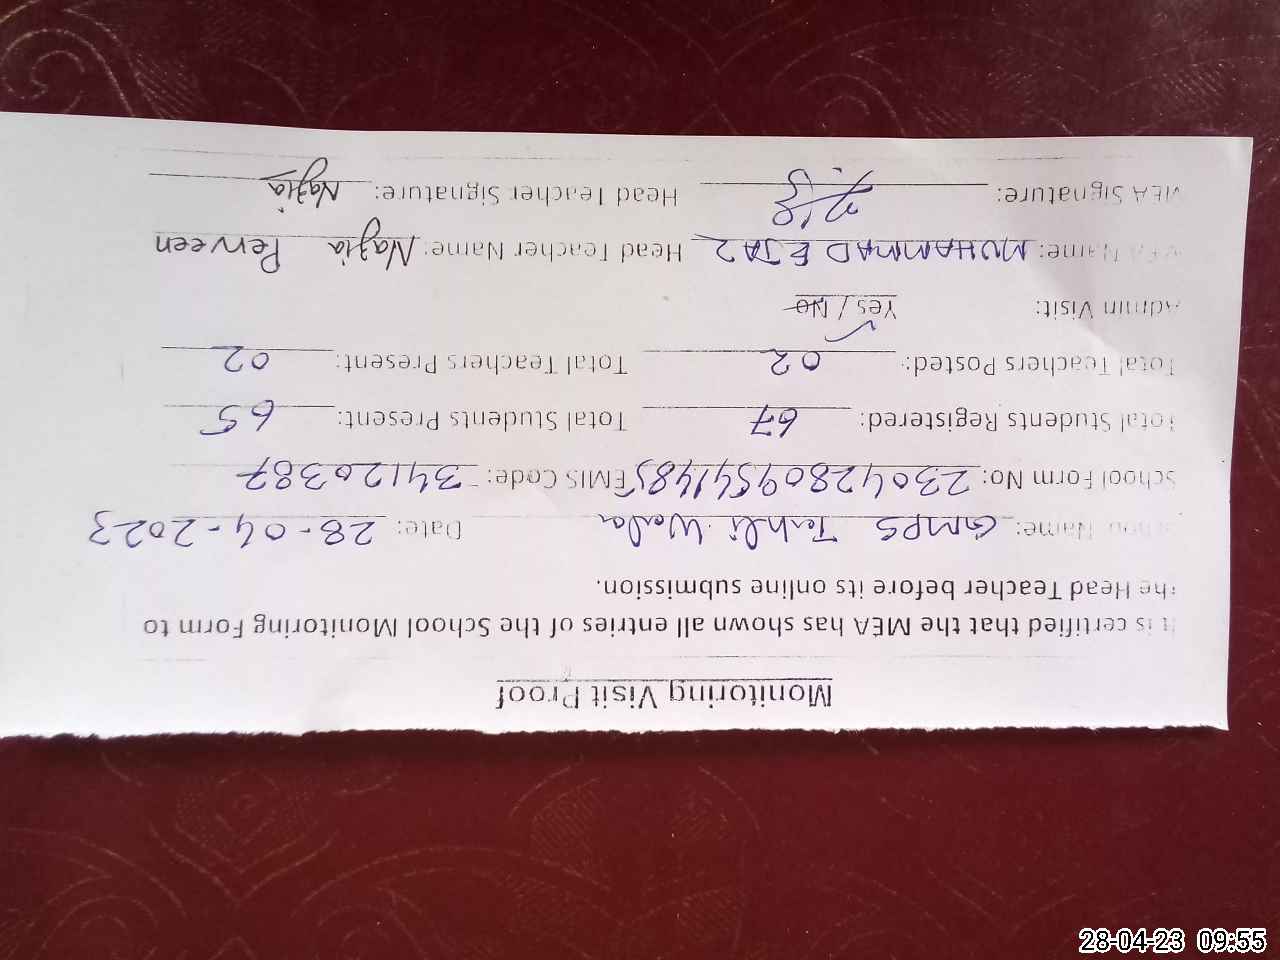 Monitoring Visit Proof
It is certified that the MEA has shown all entries of the School Monitoring Form to
the Head Teacher before its online submission.
Name: GMPS Tahli Wala Date: 28-04-2023
School Form No: 23042809541485 EMIS Code: 34120387
Total Students Registered: 67 Total Students Present: 65
Total Teachers Posted: 02 Total Teachers Present: 02
Admin Visit: Yes / No
MEA Name: MUHAMMAD EJAZ Head Teacher Name: Nazia Perveen
MEA Signature: Head Teacher Signature: Nazia
28-04-23 09:55